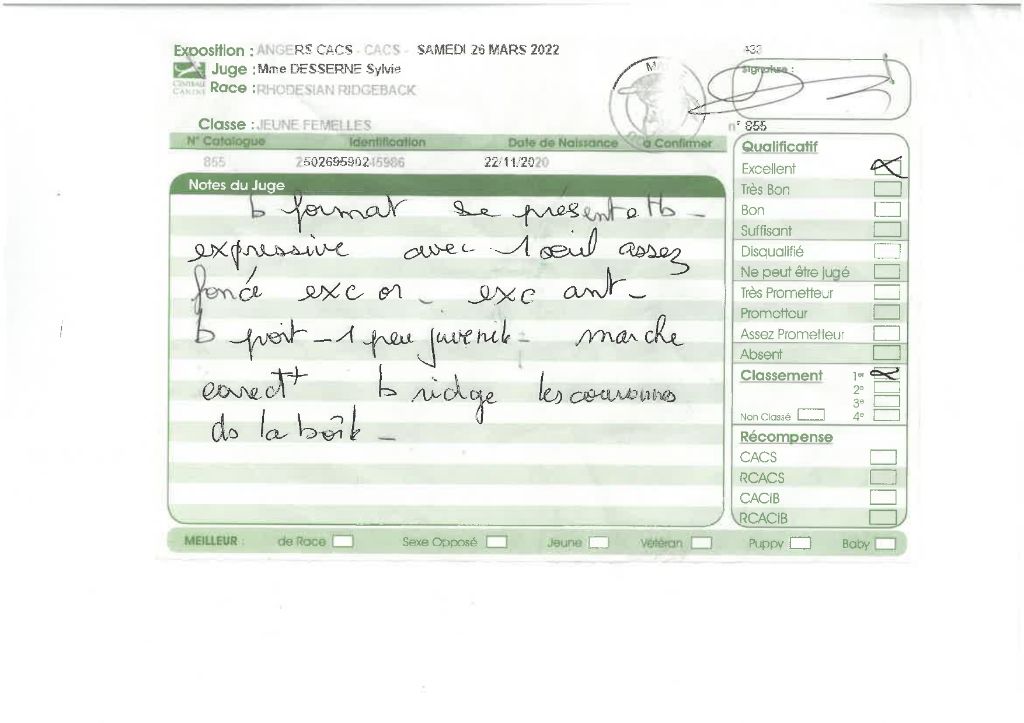 Exposition : ANGERS CACS - CACS - SAMEDI 26 MARS 2022
433
Juge : Mme DESSERNE Sylvie
Signature :
CENTRALE CANINE
Race : RHODESIAN RIDGEBACK
Classe : JEUNE FEMELLES
n° 855
N° Catalogue Identification Date de Naissance à Confirmer
855 22/11/2020
Notes du Juge
b format se présente tb -
expressive avec 1 oeil assez
foncé exc or - exc ant -
b poit - 1 peu juvenile - marche
correct ++ b ridge les couronnes
ds la boîte -
Qualificatif
Excellent
Très Bon
Bon
Suffisant
Disqualifié
Ne peut être jugé
Très Prometteur
Prometteur
Assez Prometteur
Absent
Classement 1er
2e
3e
Non Classé 4e
Récompense
CACS
RCACS
CACIB
RCACIB
MEILLEUR : de Race Sexe Opposé Jeune Vétéran Puppy Baby